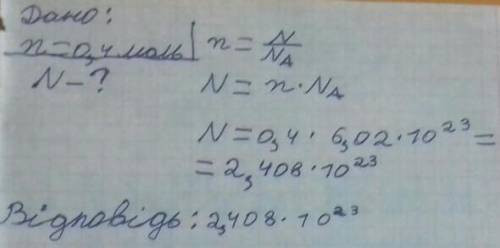 Дано:
n=0,4 моль | n = N/NA
N – ?
N = n · NA
N = 0,4 · 6,02 · 10²³ =
= 2,408 · 10²³
Відповідь: 2,408 · 10²³